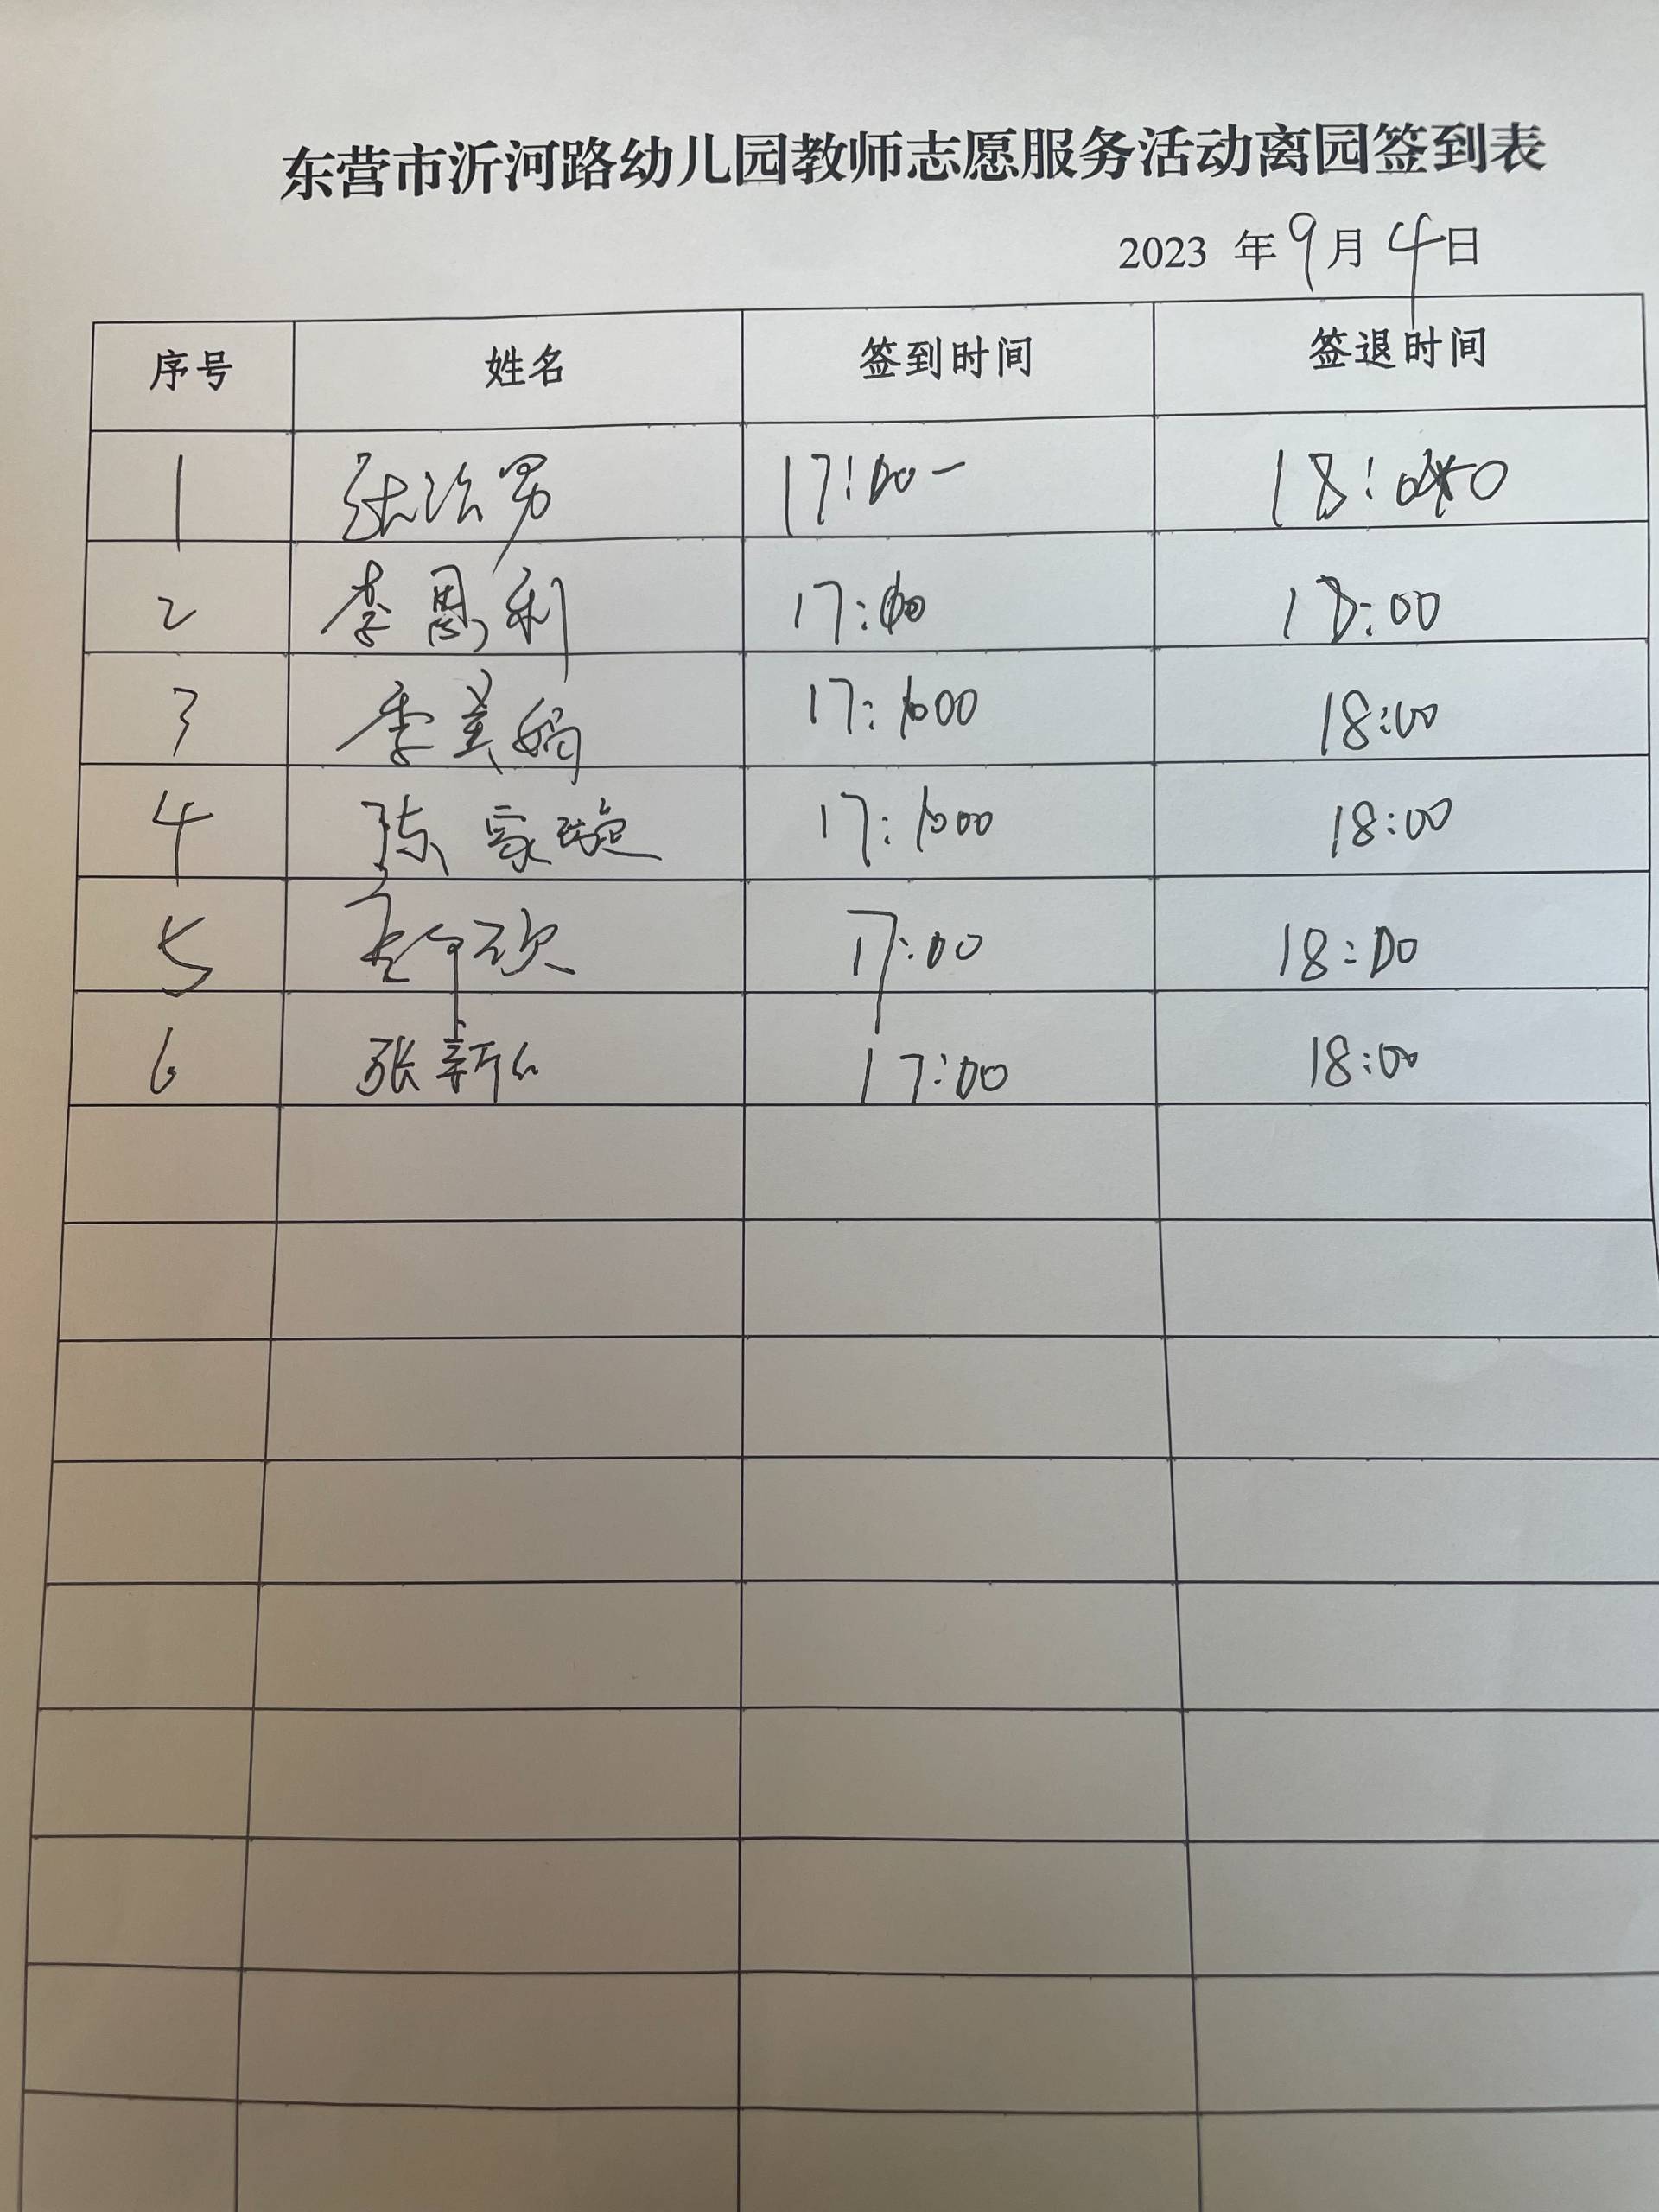 东营市沂河路幼儿园教师志愿服务活动离园签到表
2023 年 9 月 4 日
序号 姓名 签到时间 签退时间
1 男 17:00 18:00
2 李恩利 17:00 18:00
3 李美娟 17:00 18:00
4 陈家璇 17:00 18:00
5 17:00 18:00
6 张新 17:00 18:00